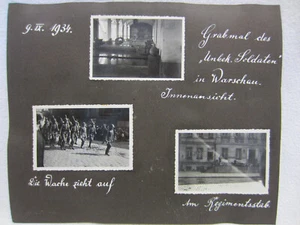 9. IX. 1934.
Grabmal des
"Unbek. Soldaten"
in Warschau.
Innenansicht.
Die Wache zieht auf
Am Regimentsstab.